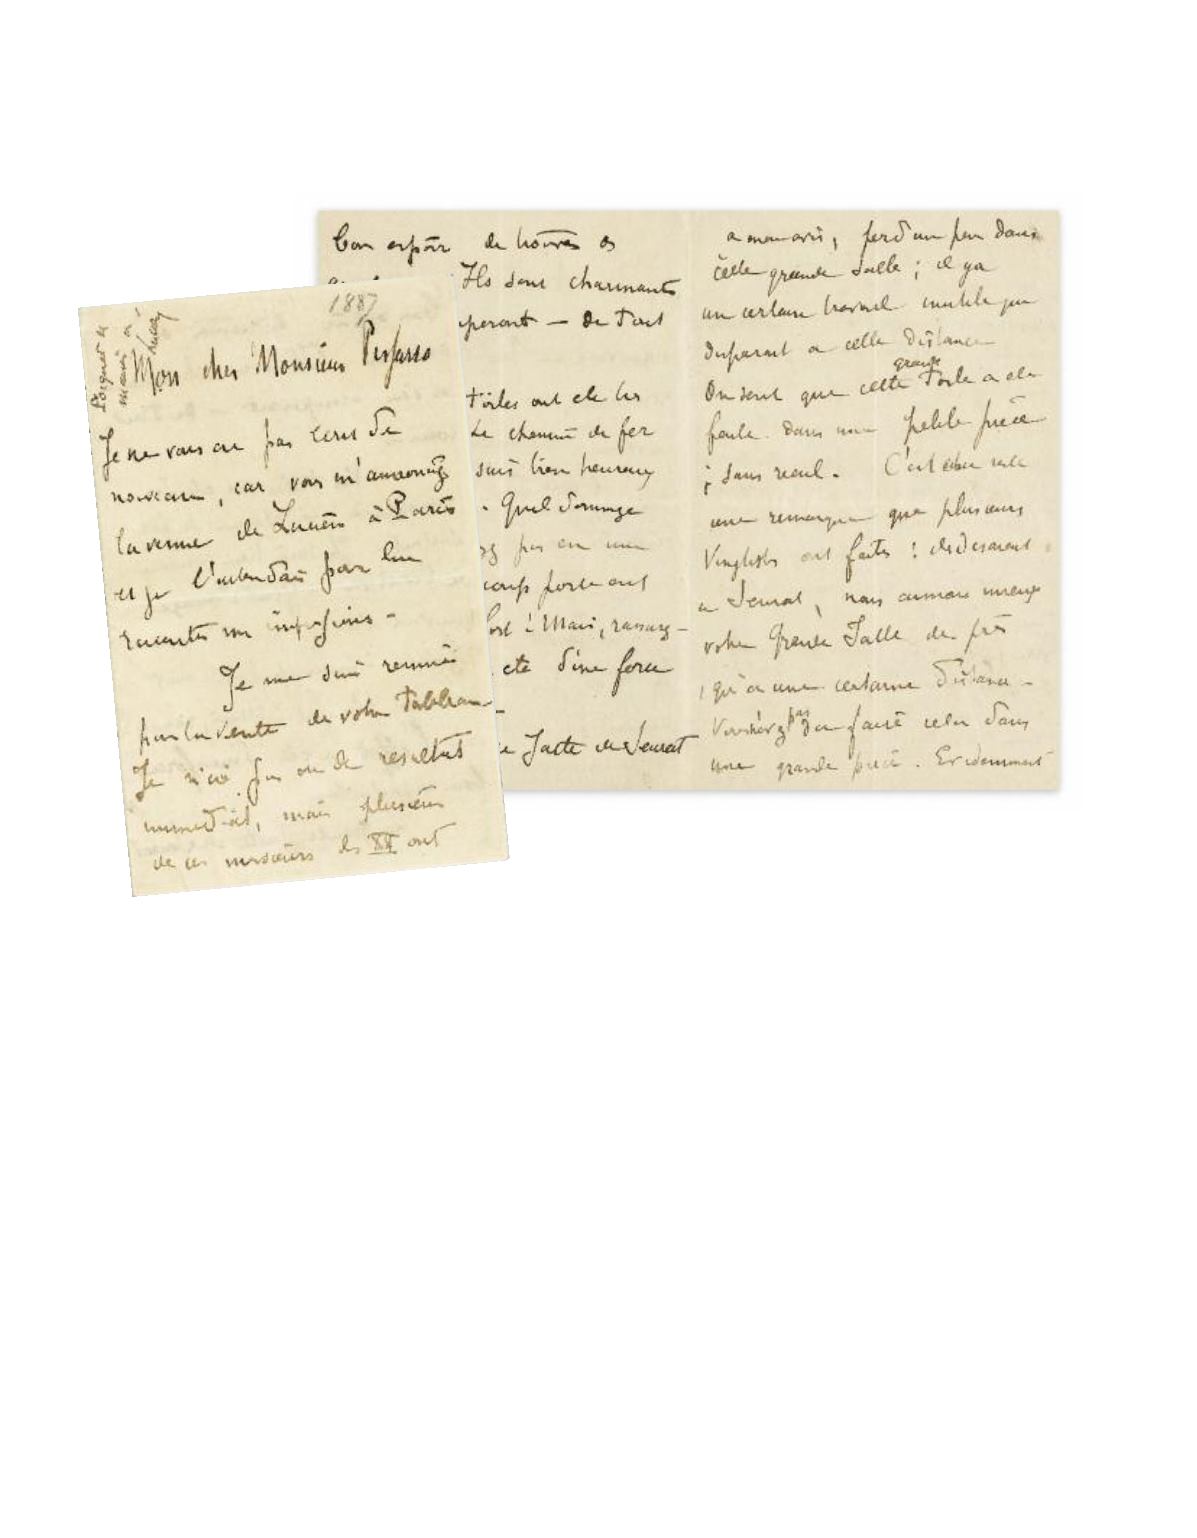 1887
Mon cher Monsieur Pissarro
Je ne vous ai pas écrit de
nouveau, car vous m'annonciez
la venue de Lucien à Paris
et je l'attendais pour lui
raconter mes impressions -
Je me suis remué
pour la vente de votre tableau
Je n'ai pas eu de résultat
immédiat, mais plusieurs
de ces messieurs des XX ont
bon espoir de trouver
Ils sont charmants
de tout
toiles ont été les
Le chemin de fer
suis bien heureux
. Quel dommage
pas eu une
coup porteront
d'une force
Jatte de Seurat
a mon avis, perd un peu dans
cette grande salle ; il y a
un certain travail inutile qui
disparait a cette distance
On sent que cette grande toile a été
faite dans une petite pièce
, sans recul. C'est
une remarque que plusieurs
Vingtistes ont faites : ils disaient
a Seurat, nous aimons mieux
votre Grande Jatte de près
, qu'a une certaine distance -
Vous n'avez pas du faire cela dans
une grande pièce. Evidemment